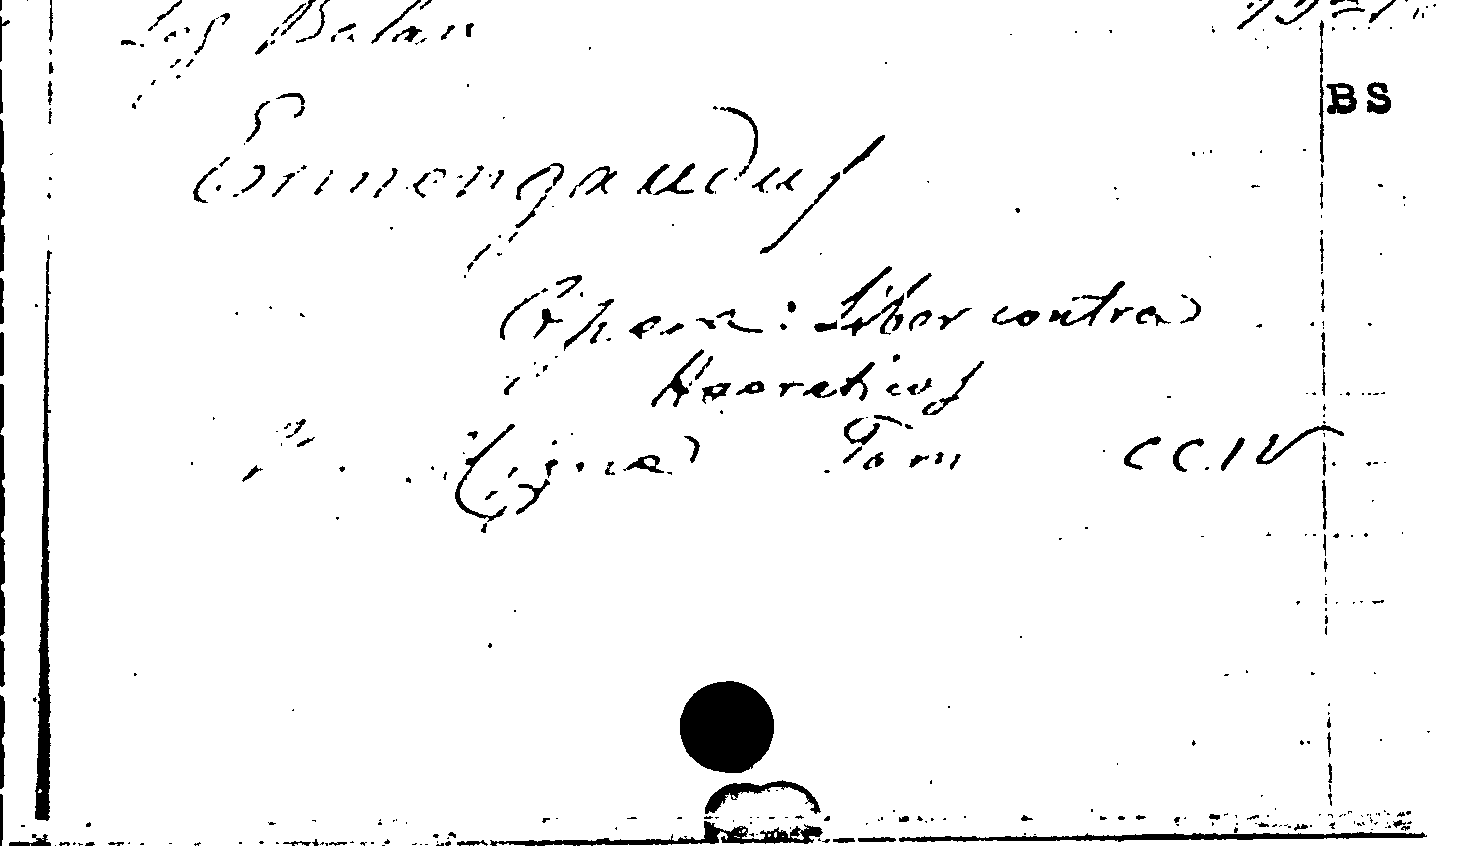 Log Balan
BS
Ermengaudus
Opera: Liber contra
Haereticos
P. Migne Tom CCIV